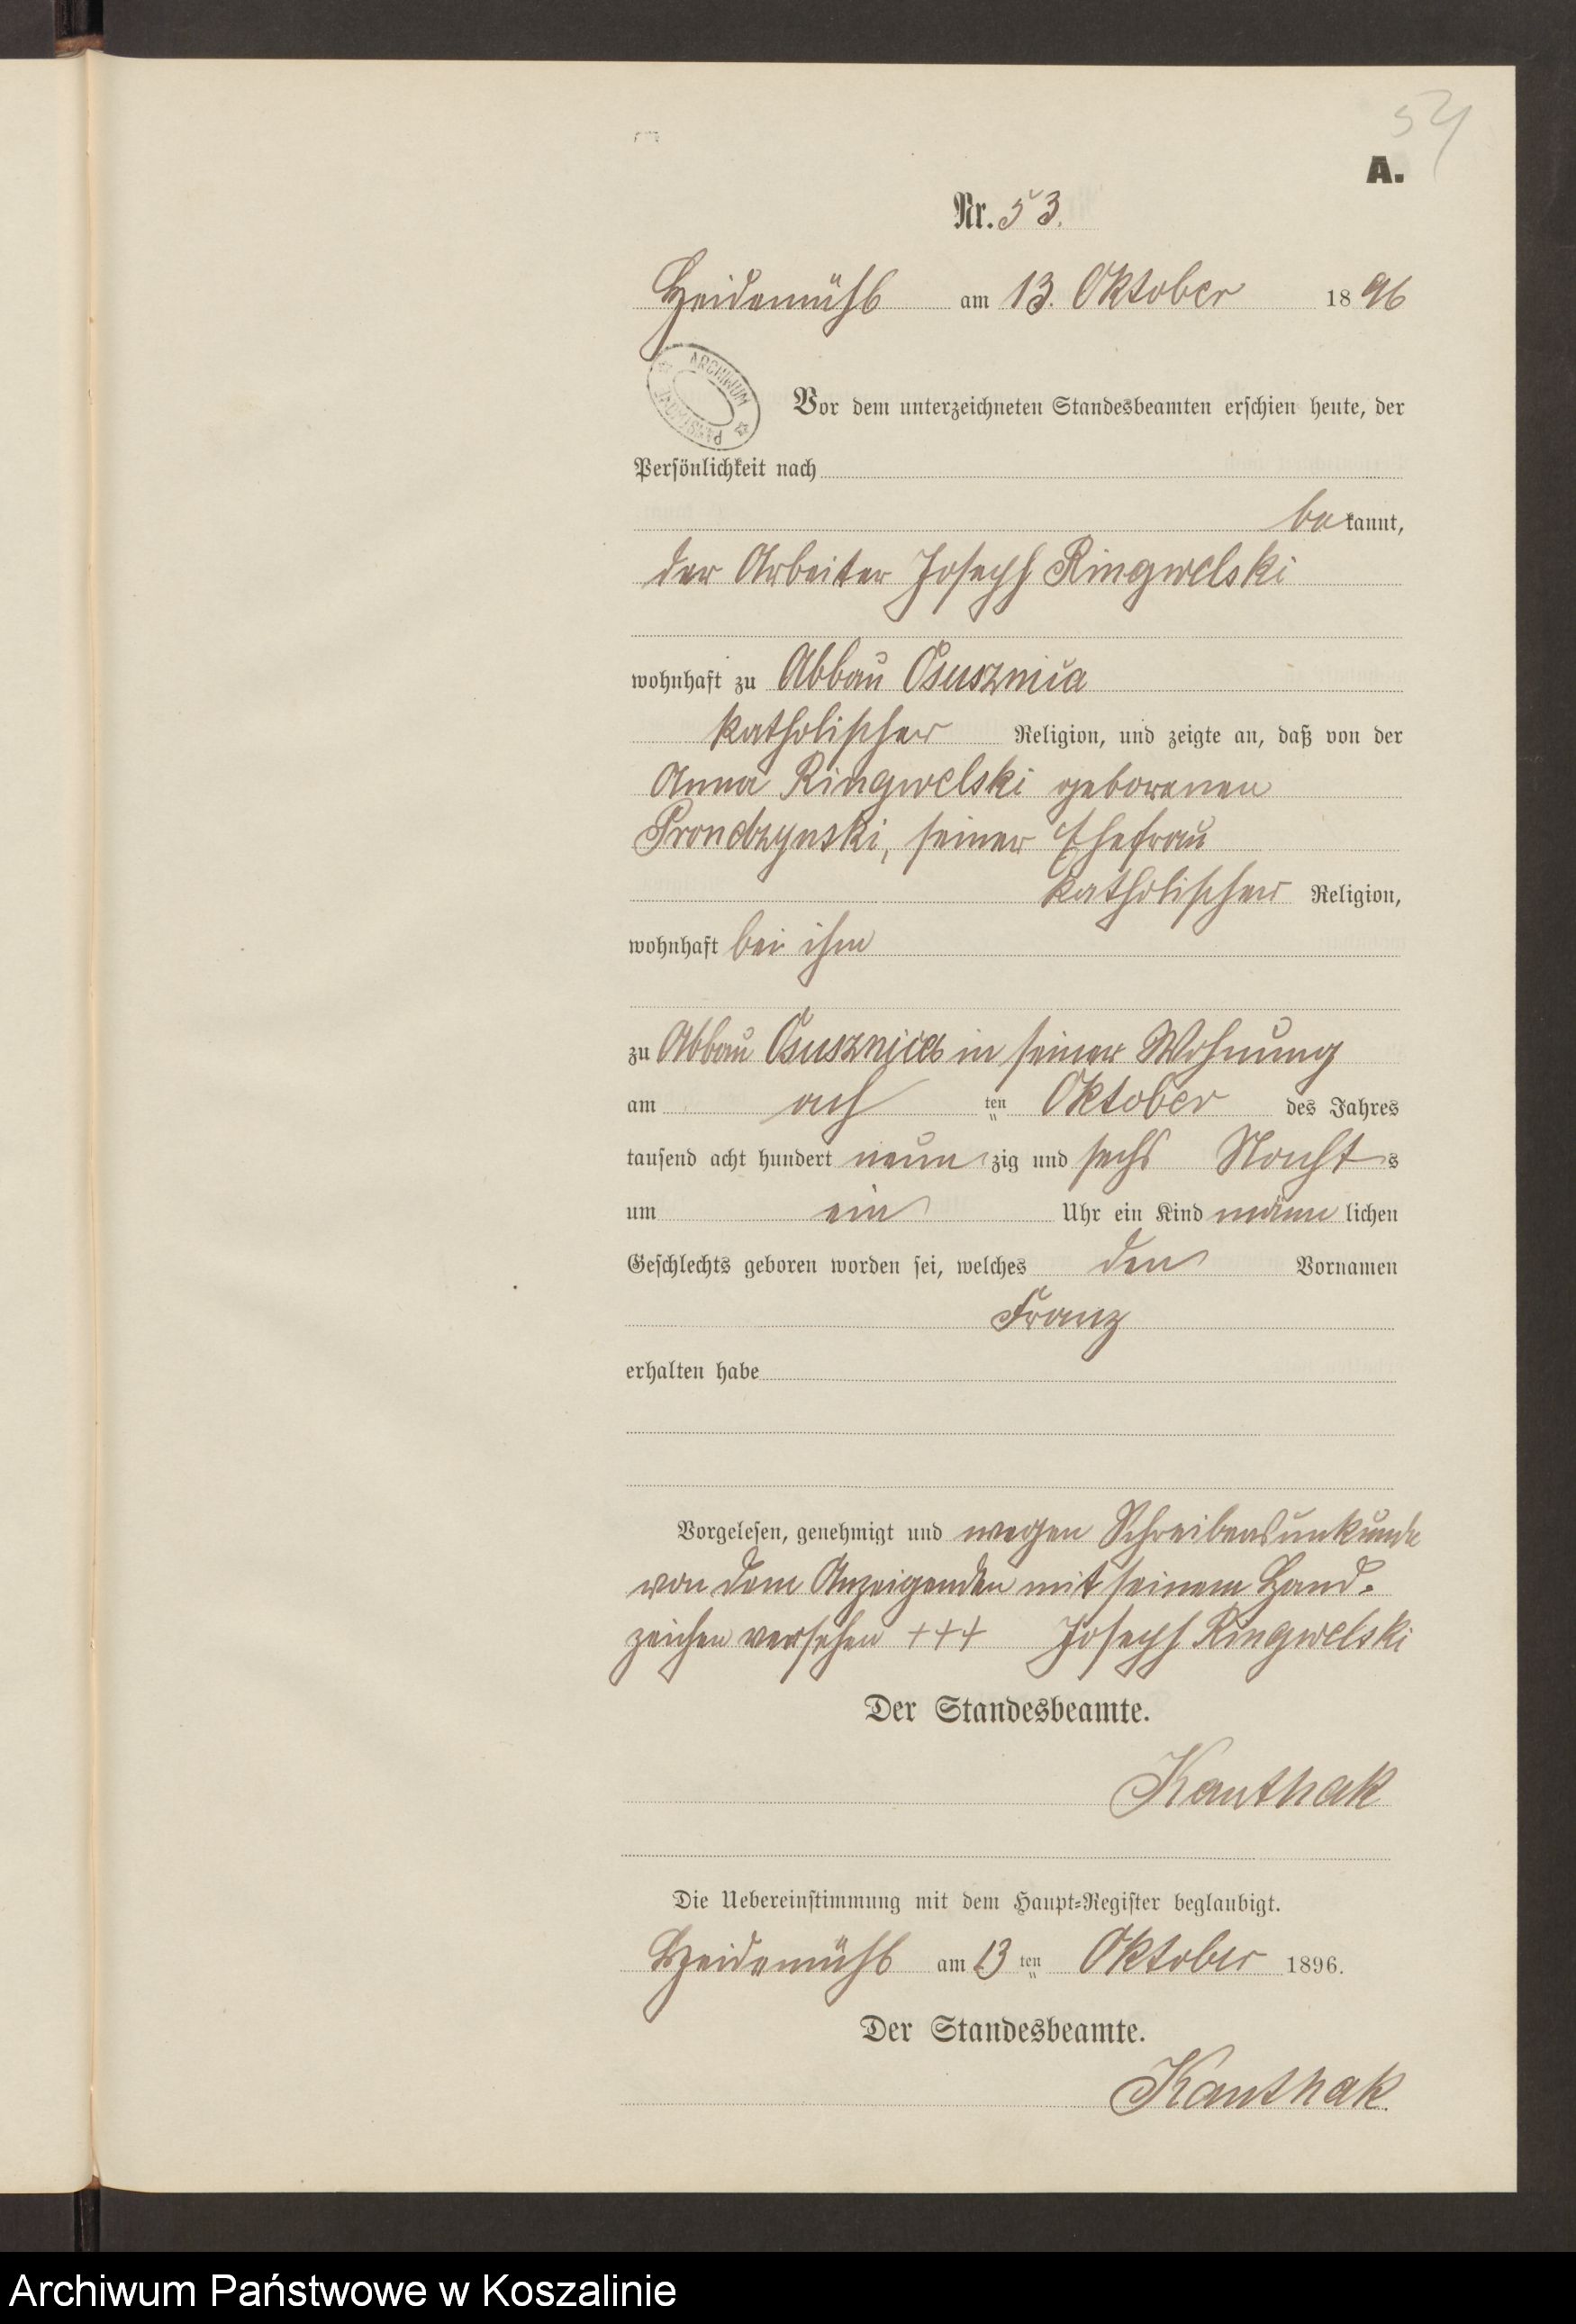 54
A.
Nr. 53.
Heidemühl am 13. Oktober 1896
ARCHIWUM PAŃSTWOWE
Vor dem unterzeichneten Standesbeamten erschien heute, der
Persönlichkeit nach
bekannt,
der Arbeiter Joseph Ringwelski
wohnhaft zu Abbau Osusznica
katholischer Religion, und zeigte an, daß von der
Anna Ringwelski geborenen
Prondzynski, seiner Ehefrau
katholischer Religion,
wohnhaft bei ihm
zu Abbau Osusznica in seiner Wohnung
am ach ten Oktober des Jahres
tausend acht hundert neunzig und sechs Nachts
um ein Uhr ein Kind männlichen
Geschlechts geboren worden sei, welches den Vornamen
Franz
erhalten habe
Vorgelesen, genehmigt und wegen Schreibensunkunde
von dem Anzeigenden mit seinem Hand-
zeichen versehen +++ Joseph Ringwelski
Der Standesbeamte.
Kanthak
Die Uebereinstimmung mit dem Haupt-Register beglaubigt.
Heidemühl am 13 ten Oktober 1896.
Der Standesbeamte.
Kanthak.
Archiwum Państwowe w Koszalinie